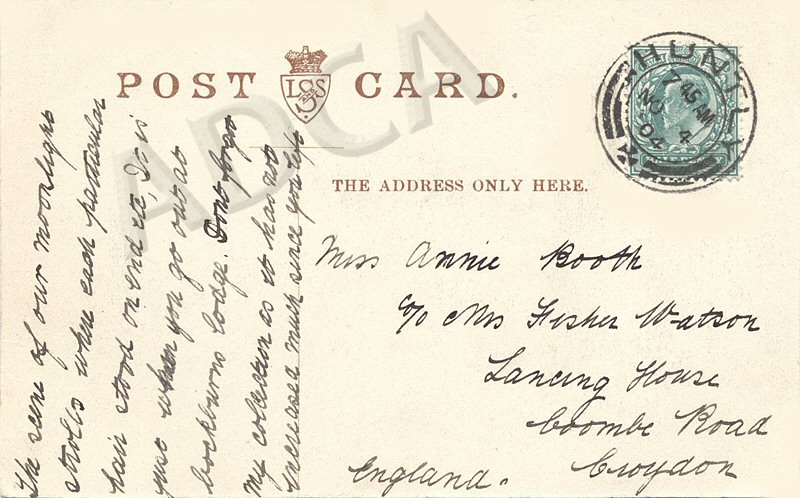 POST CARD.
LSS
HUNTLY
7 45 AM
NO 4
04
THE ADDRESS ONLY HERE.
The scene of our moonlight
strolls when each particular
hair stood on end etc, It is
just when you go out at
Cockburns lodge. Dont forget
my collection as it has not
increased much since you left
Miss Annie Booth
c/o Mrs Fisher Watson
Lancing House
Coombe Road
Croydon
England.
ADCA